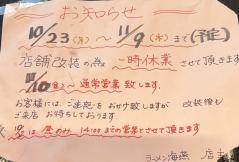 お知らせ
10/23(月)〜11/9(木)まで(予定)
店舗改装の為 一時休業 させて頂きます
11/10(金)〜通常営業致します。
お客様にはご迷惑をおかけ致しますが 改装後も
ご来店お待ちしております
は昼のみ 14:00までの営業とさせて頂きます
ラーメン海燕 店主